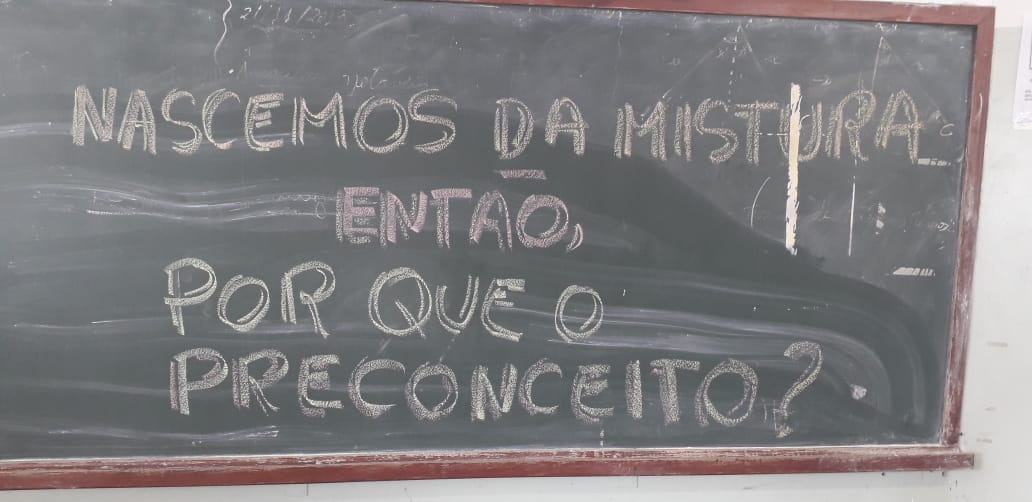 NASCEMOS DA MISTURA
ENTÃO,
POR QUE O
PRECONCEITO?